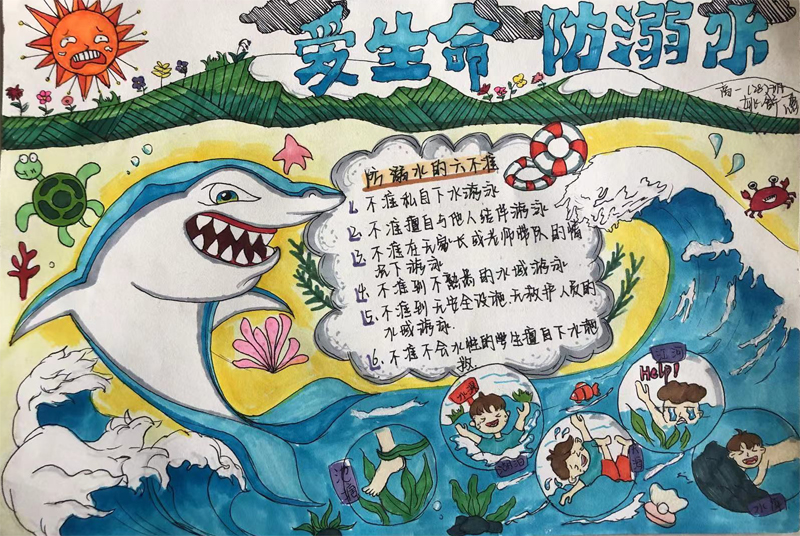 爱生命 防溺水
防溺水的六不准
1、不准私自下水游泳
2、不准擅自与他人结伴游泳
3、不准在无家长或老师带队的情
况下游泳
4、不准到不熟悉的水域游泳
5、不准到无安全设施、无救护人员的
水域游泳.
6、不准不会水性的学生擅自下水施
救.
江河
Help!
池塘